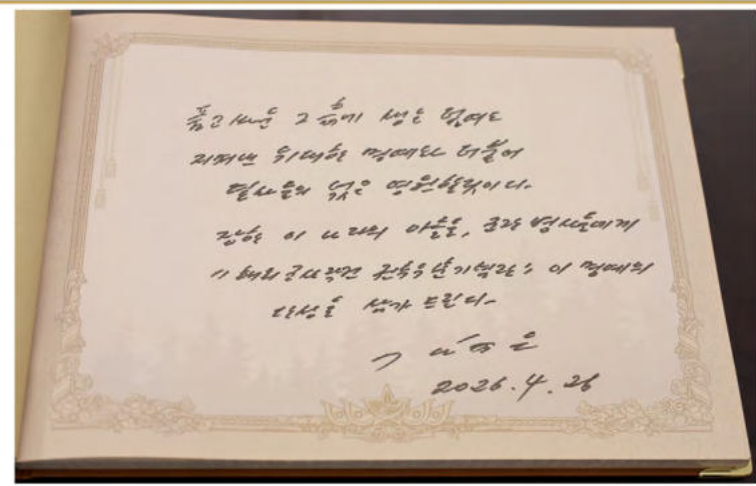 품고 싸운 그 뜻에 생은 멎어도
지켜낸 위대한 명예와 더불어
렬사들의 넋은 영원할것이다.
장한 이 나라의 아들들, 군관 병사들에게
《해외군사작전 전투위훈기념관》 이 명예의
단상을 삼가 드린다.
김정은
2026.4.26